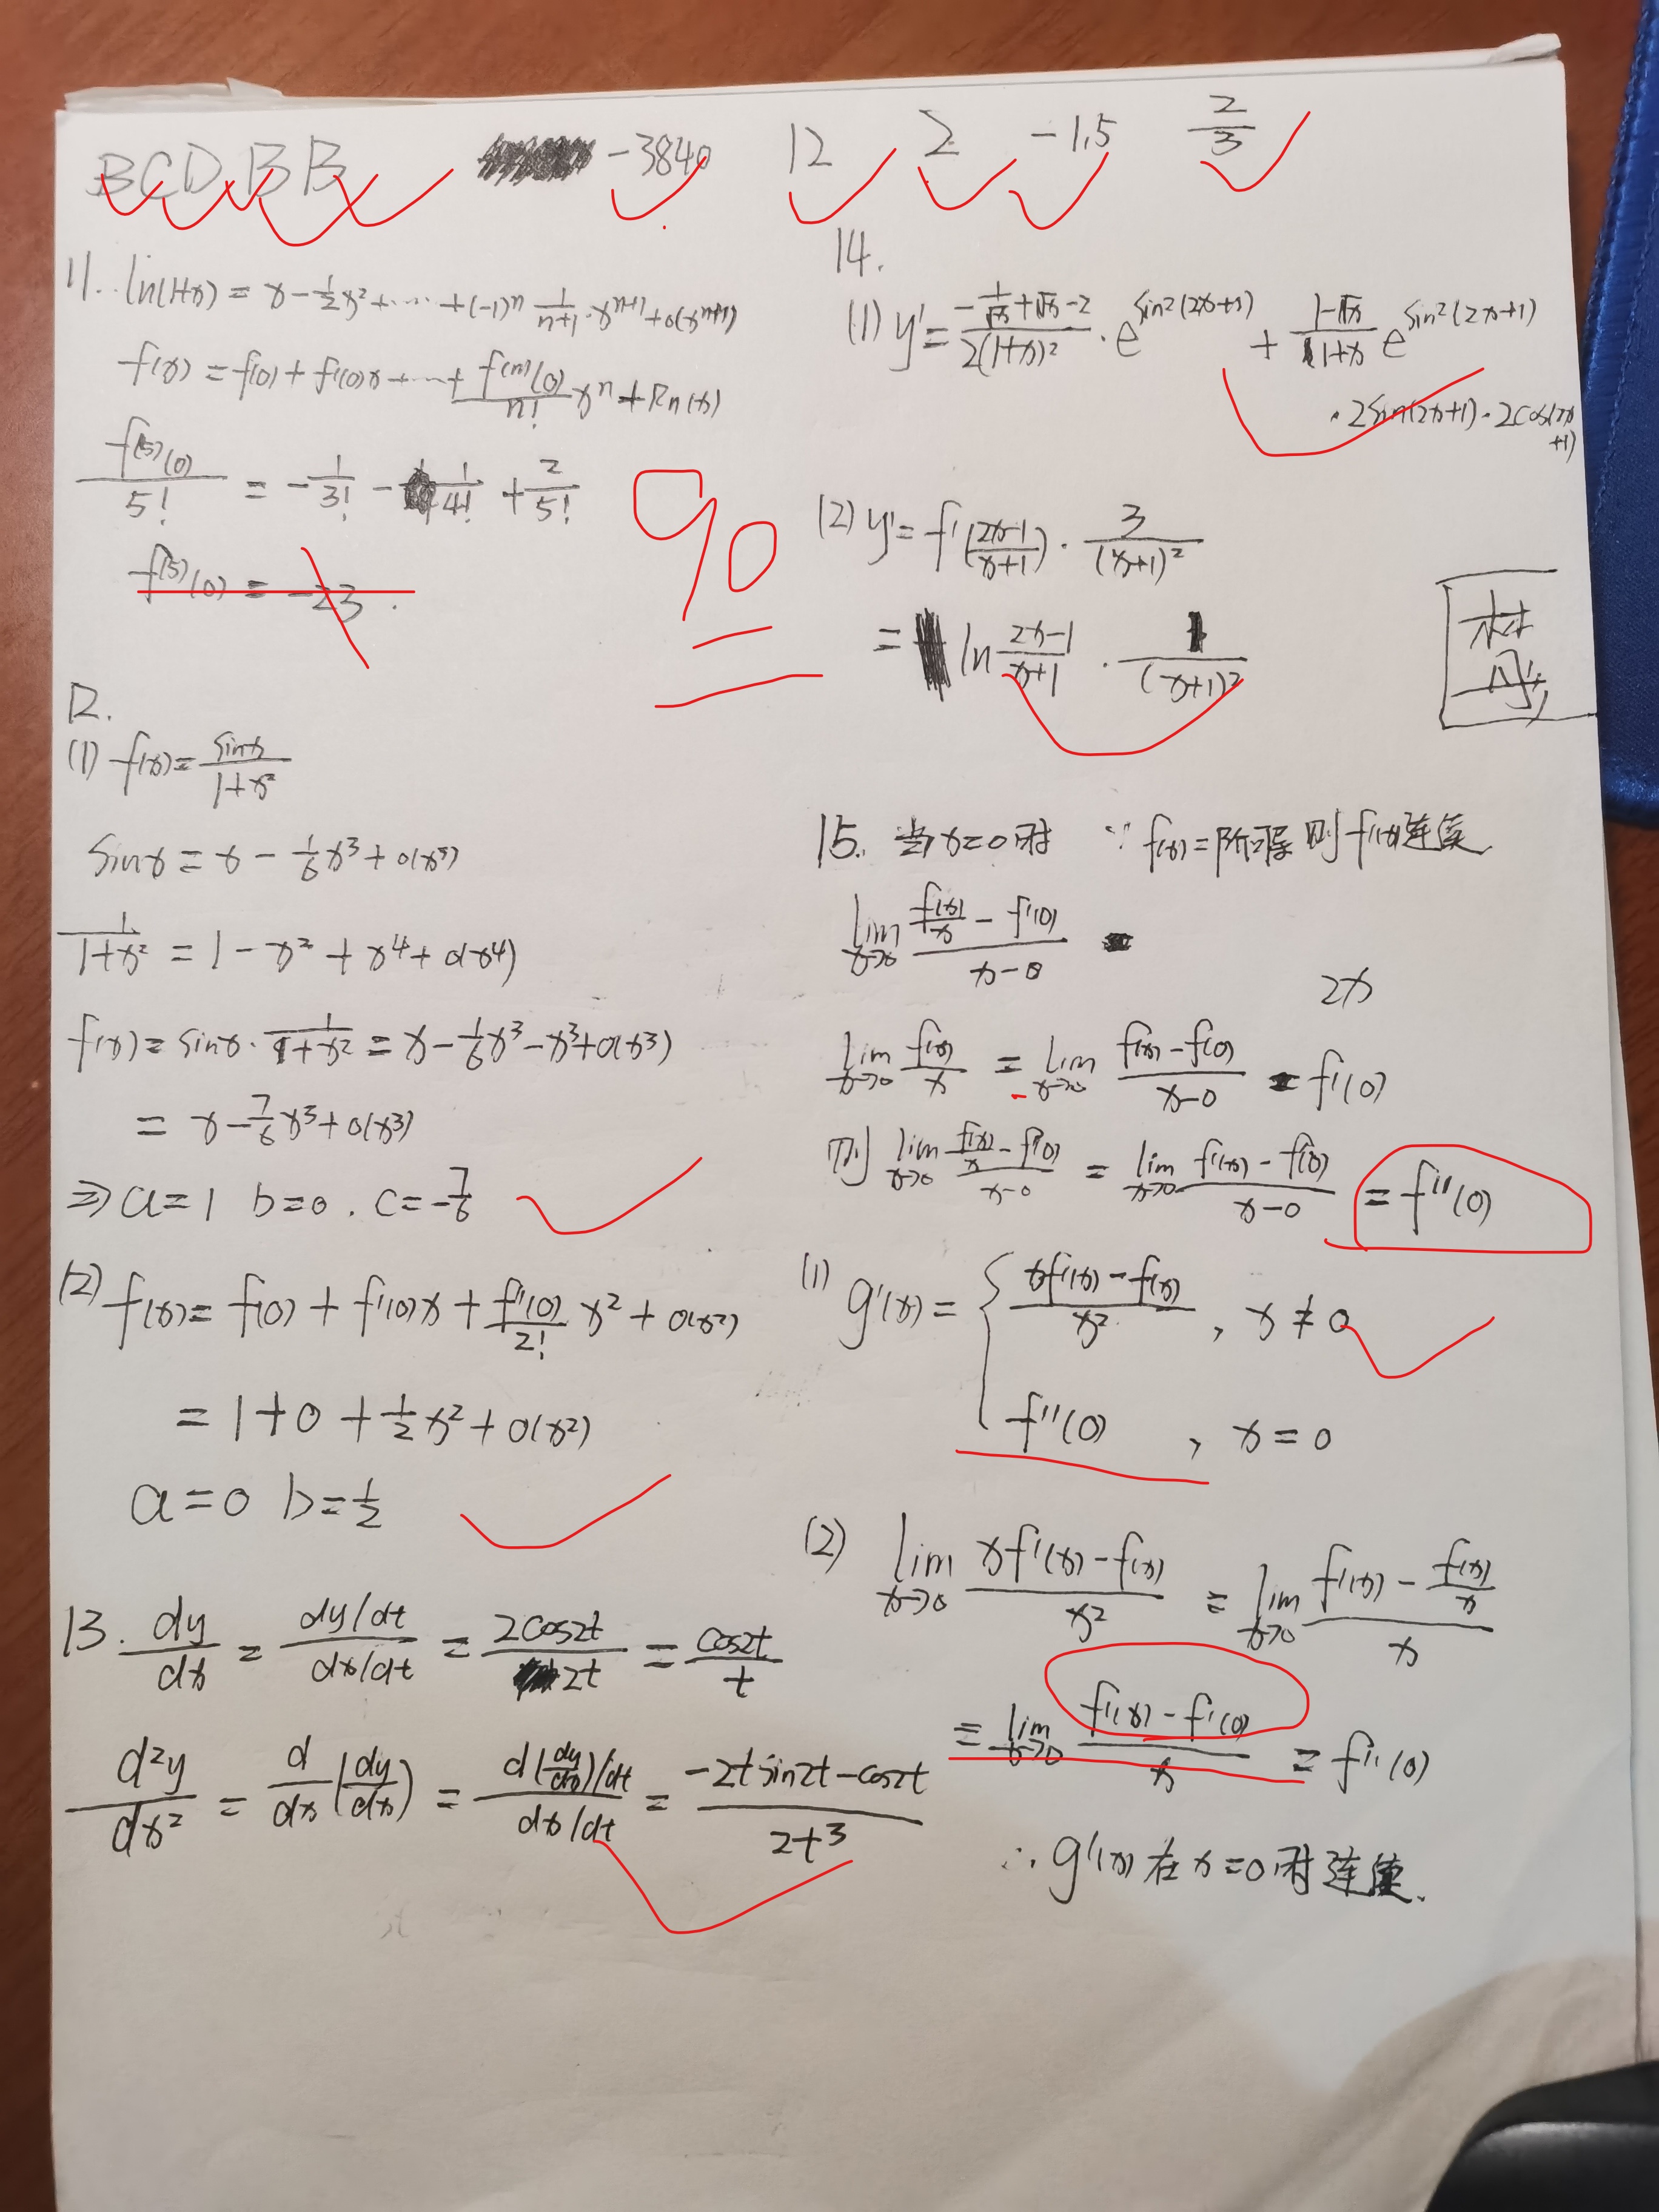 BCDBB -3840 12 2 -1.5 2/3
11. ln(1+x) = x - 1/2 x² + ⋯ + (-1)ⁿ 1/(n+1) · xⁿ⁺¹ + o(xⁿ⁺¹)
f(x) = f(0) + f'(0)x + ⋯ + f⁽ⁿ⁾(0)/n! xⁿ + Rn(x)
f⁽⁵⁾(0)/5! = -1/3! - 1/4! + 2/5!
f⁽⁵⁾(0) = -23.
90
12.
(1) f(x) = sinx/(1+x²)
sinx = x - 1/6 x³ + o(x³)
1/(1+x²) = 1 - x² + x⁴ + o(x⁴)
f(x) = sinx · 1/(1+x²) = x - 1/6 x³ - x³ + o(x³)
= x - 7/6 x³ + o(x³)
⇒ a=1 b=0. c=-7/6
(2) f(x) = f(0) + f'(0)x + f''(0)/2! x² + o(x²)
= 1 + 0 + 1/2 x² + o(x²)
a=0 b=1/2
13. dy/dx = (dy/dt)/(dx/dt) = 2cos2t/2t = cos2t/t
d²y/dx² = d/dx (dy/dx) = (d(dy/dx)/dt)/(dx/dt) = (-2tsin2t - cos2t)/2t³
14.
(1) y' = (-1/√x + √x - 2)/(2(1+x)²) · e^(sin²(2x+1)) + (1-√x)/(1+x) e^(sin²(2x+1))
· 2sin(2x+1) · 2cos(2x+1)
(2) y' = f'((2x-1)/(x+1)) · 3/(x+1)²
= ln (2x-1)/(x+1) · 1/(x+1)²
15. 当x=0时 ∵ f(x)=阶可导 则f'(x)连续.
lim x→0 (f(x)/x - f'(0))/(x-0)
2x
lim x→0 f(x)/x = lim x→0 (f(x)-f(0))/(x-0) = f'(0)
则 lim x→0 (f(x)/x - f'(0))/(x-0) = lim x→0 (f'(x) - f'(0))/(x-0) = f''(0)
(1) g'(x) = { (xf'(x) - f(x))/x², x≠0
f''(0), x=0
(2) lim x→0 (xf'(x) - f(x))/x² = lim x→0 (f'(x) - f(x)/x)/x
= lim x→0 (f'(x) - f'(0))/x = f''(0)
∴ g'(x)在x=0时连续.